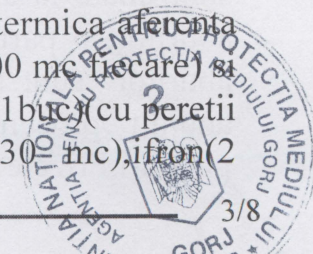 termica aferenta
00 mc fiecare) si
1buc)(cu peretii
30 mc),ifron(2
3/8
NATIONALA PENTRU PROTECTIA MEDIULUI
AGENTIA PENTRU PROTECTIA MEDIULUI GORJ
2
GORJ